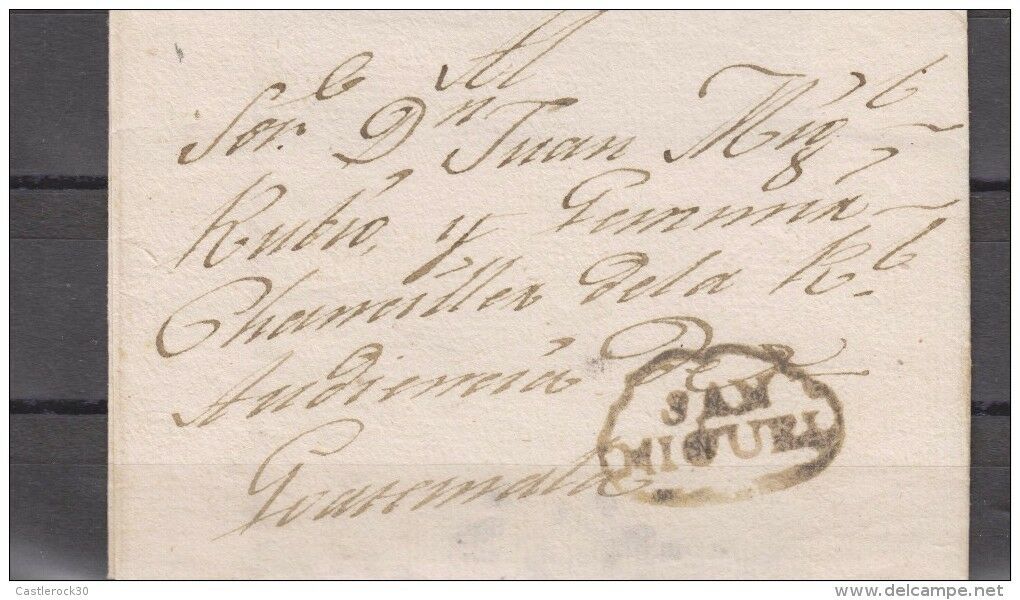 Al
Sor. Dn Juan Migl
Rubio, y Gemmir
Chanciller dela Rl.
Audiencia De
Guatemala
SAN
MIGUEL
Castlerock30
delcampe.net